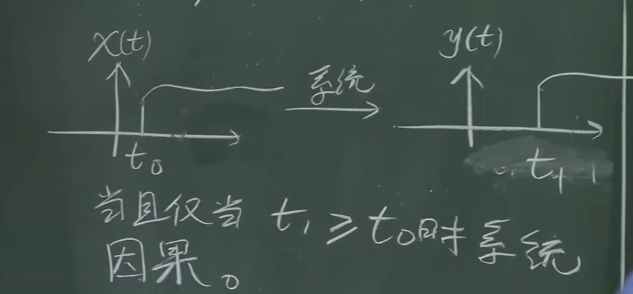 x(t)
系统
y(t)
t₀
当且仅当 t₁ ≥ t₀时系统
因果。